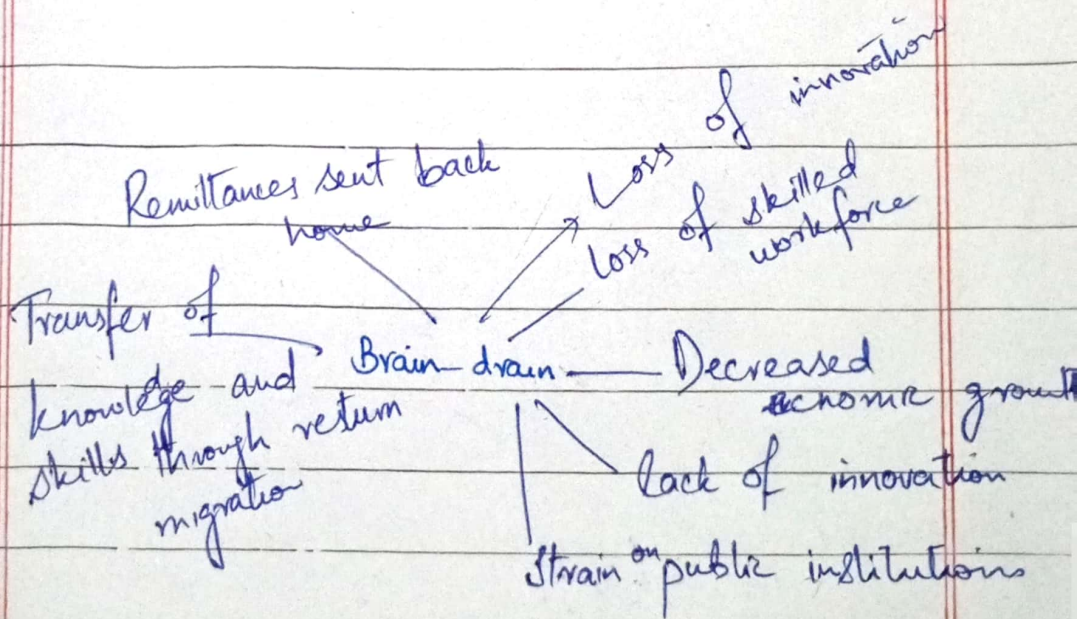 Loss of innovation
Remittances sent back
home
loss of skilled
workforce
Transfer of
knowledge and
skills through return
migration
Brain drain
Decreased
echomic growth
lack of innovation
Strain on public institutions